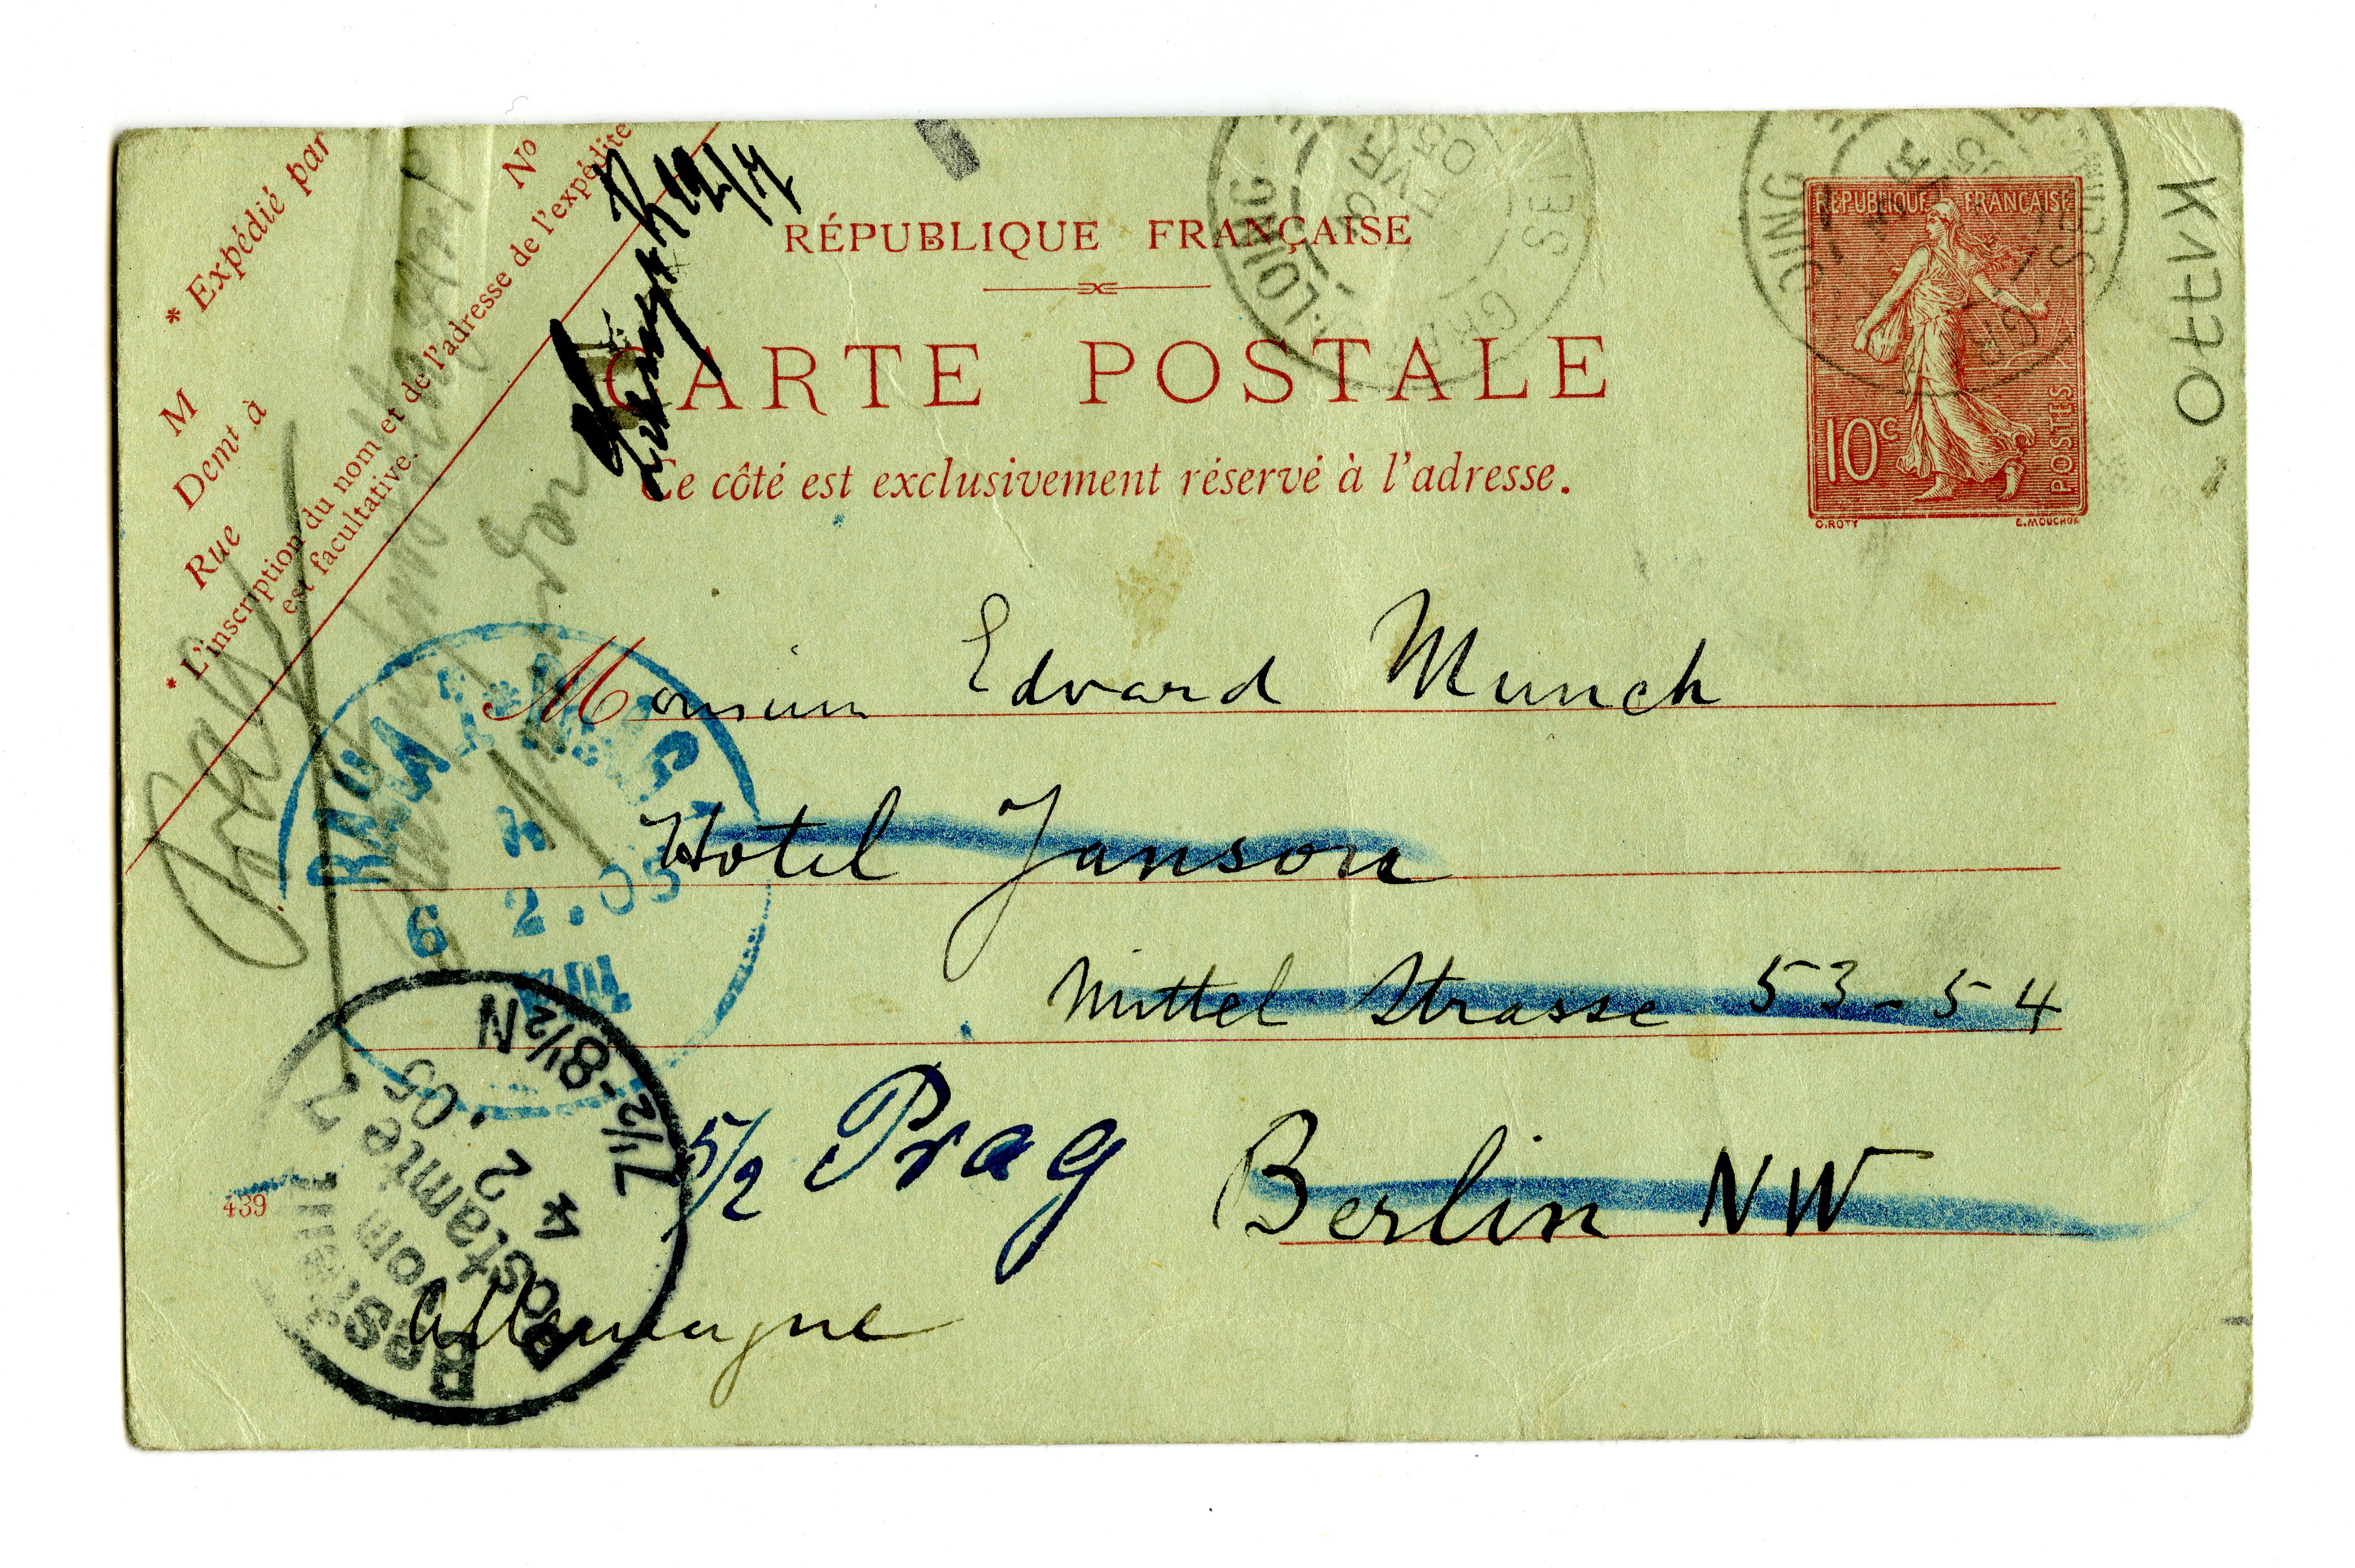 * Expédié par
M
Demt à
Rue
No
* L'inscription du nom et de l'adresse de l'expédite
est facultative.
RÉPUBLIQUE FRANÇAISE
CARTE POSTALE
Ce côté est exclusivement réservé à l'adresse.
REPUBLIQUE FRANÇAISE
10c
POSTES
O. ROTY
E. MOUCHON
LOING
SEI
ING
K1770
Prag
Monsieur Edvard Munch
Hotel Janson
Mittel Strasse 53-54
5/2 Prag
Berlin NW
Allemagne
6 2.05
Bestellt
vom
Postamte 7
4 2 .05
7 1/2-8 1/2 N
439